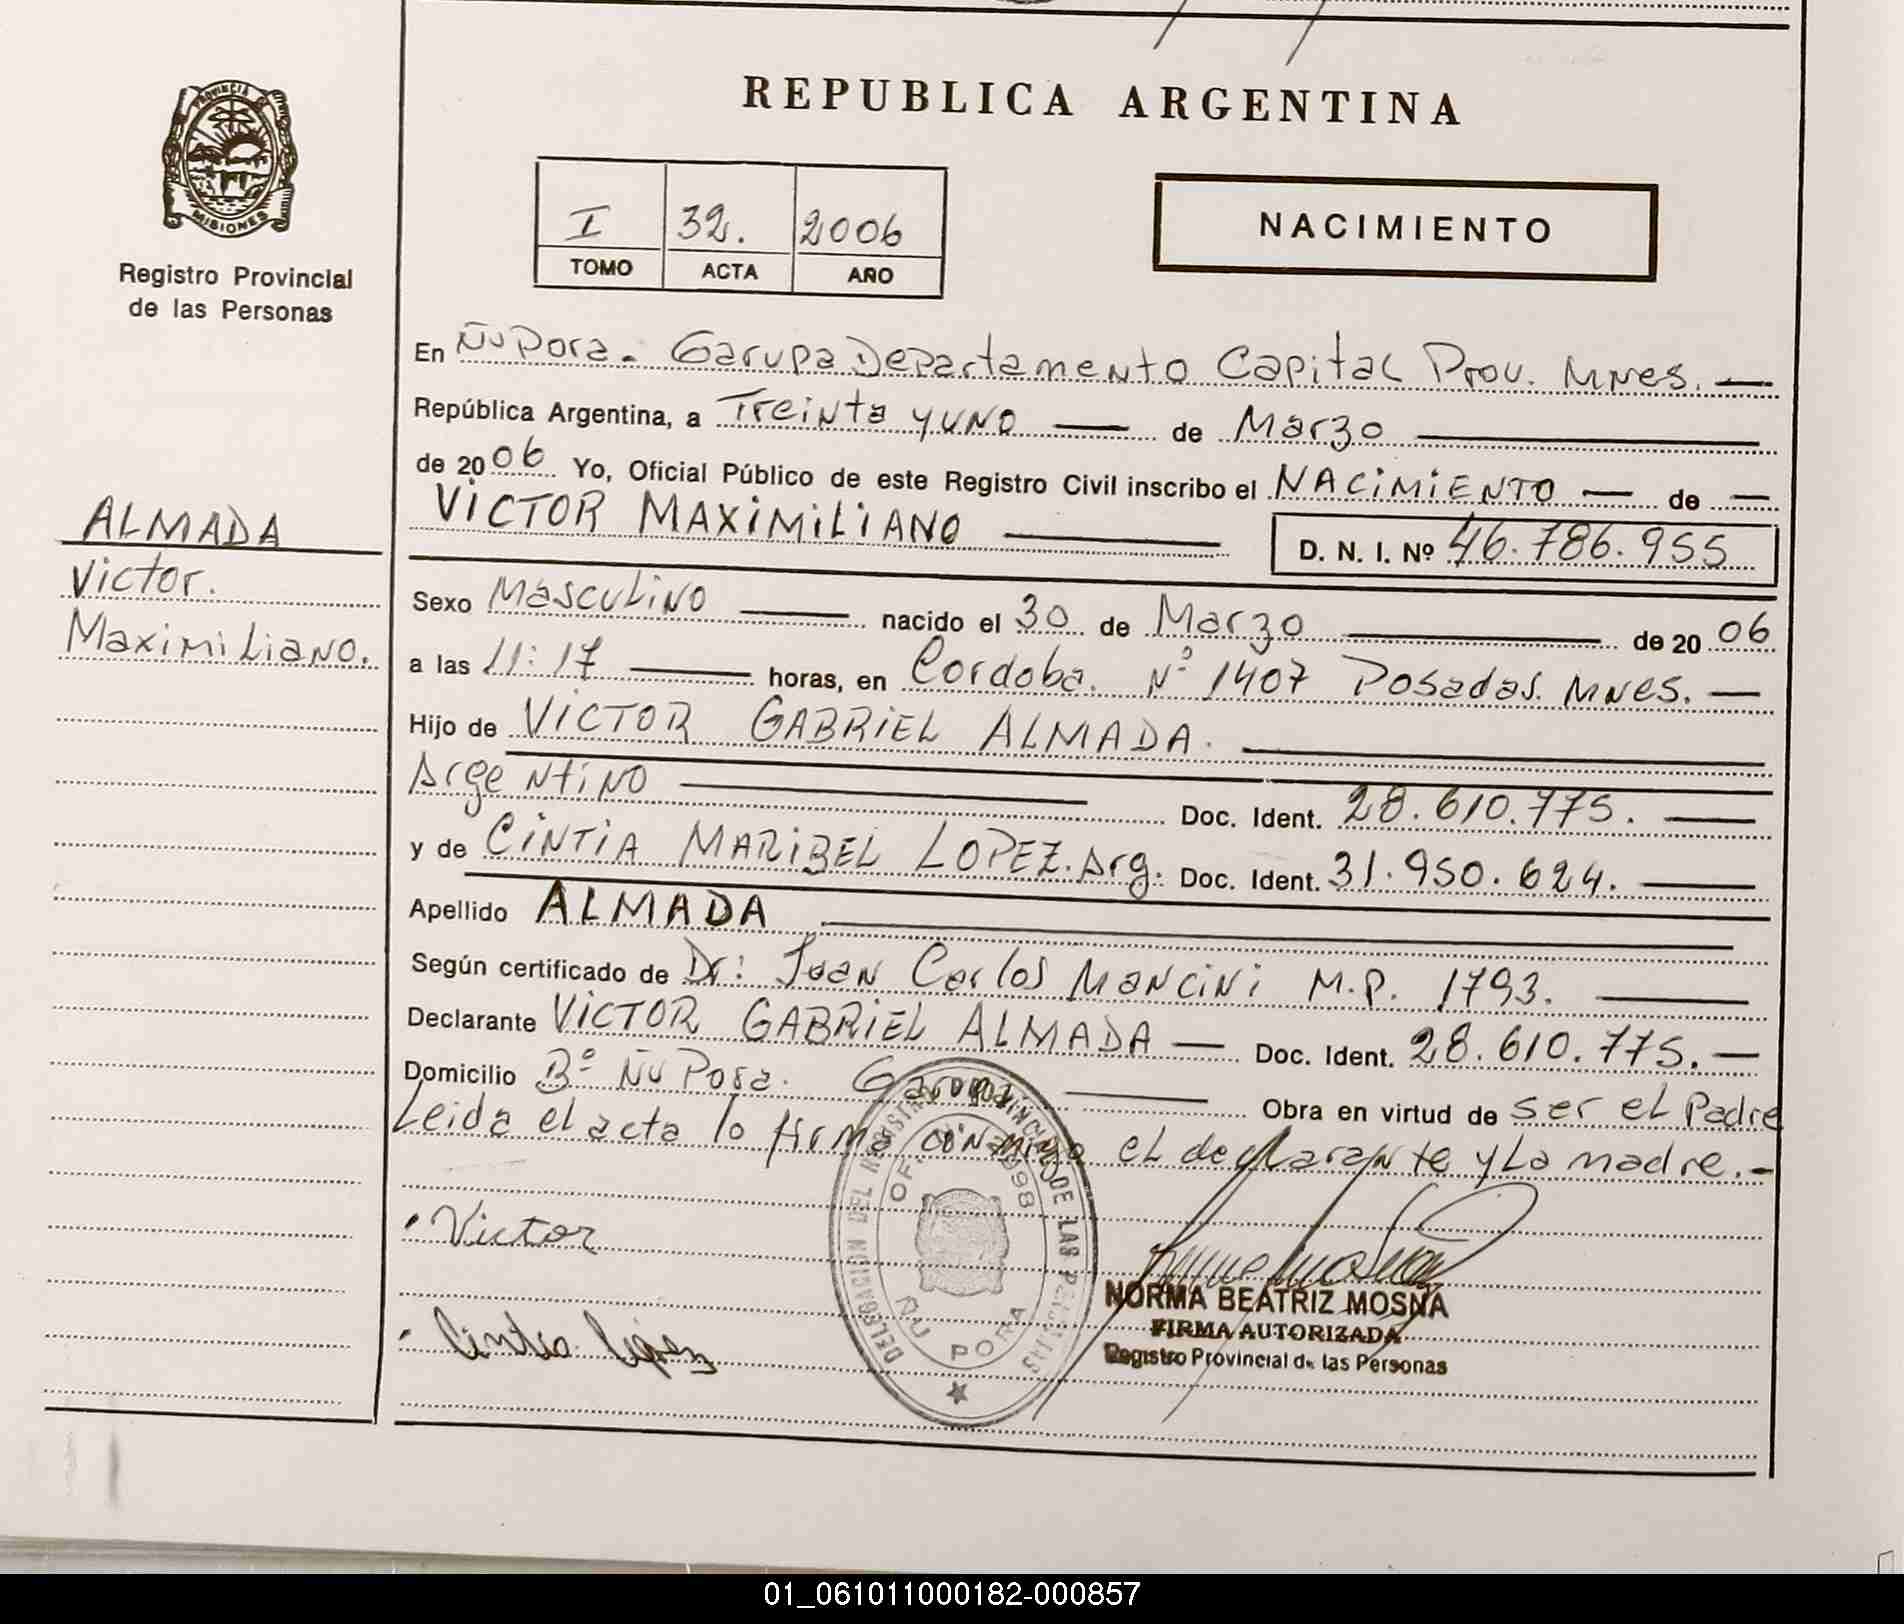 REPUBLICA ARGENTINA
PROVINCIA DE
MISIONES
Registro Provincial
de las Personas
I 32. 2006
TOMO ACTA AÑO
NACIMIENTO
En Ñu Pora. Garupa Departamento Capital Prov. Mnes.
República Argentina, a Treinta y uno de Marzo
de 2006 Yo, Oficial Público de este Registro Civil inscribo el NACIMIENTO de
VICTOR MAXIMILIANO D. N. I. Nº 46.786.955
ALMADA
Victor.
Maximiliano.
Sexo Masculino nacido el 30 de Marzo de 2006
a las 11:17 horas, en Cordoba. Nº 1407 Posadas. Mnes.
Hijo de VICTOR GABRIEL ALMADA.
Argentino Doc. Ident. 28.610.775.
y de CINTIA MARIBEL LOPEZ. Arg. Doc. Ident. 31.950.624.
Apellido ALMADA
Según certificado de Dr: Juan Carlos Mancini M.P. 1793.
Declarante VICTOR GABRIEL ALMADA Doc. Ident. 28.610.775.
Domicilio Bº Ñu Pora. Garupa Obra en virtud de ser el Padre
Leida el acta lo firma conmigo el declarante y La madre.
Victor
Cintia López
DELEGACION DEL REGISTRO PROVINCIAL DE LAS PERSONAS
ÑU PORA
NORMA BEATRIZ MOSNA
FIRMA AUTORIZADA
Registro Provincial de las Personas
01_061011000182-000857